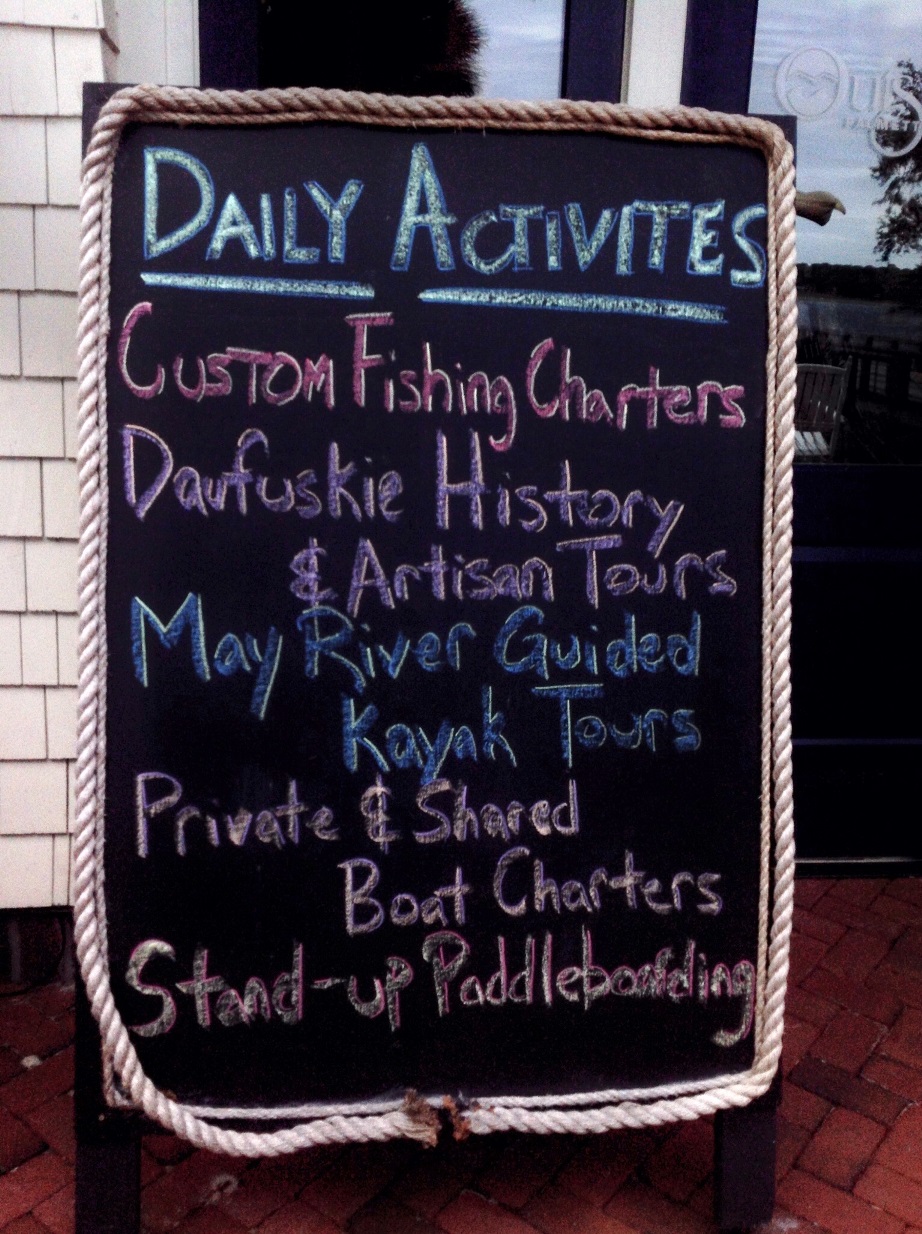 DAILY ACTIVITES
CUSTOM Fishing Charters
Daufuskie History
& Artisan Tours
May River Guided
Kayak Tours
Private & Shared
Boat Charters
Stand-up Paddleboarding